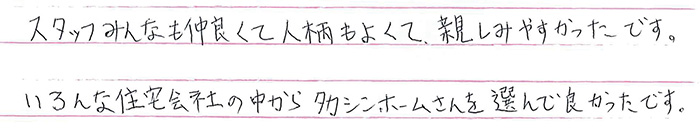 スタッフみんなも仲良くて人柄もよくて、親しみやすかったです。
いろんな住宅会社の中からタカシンホームさんを選んで良かったです。